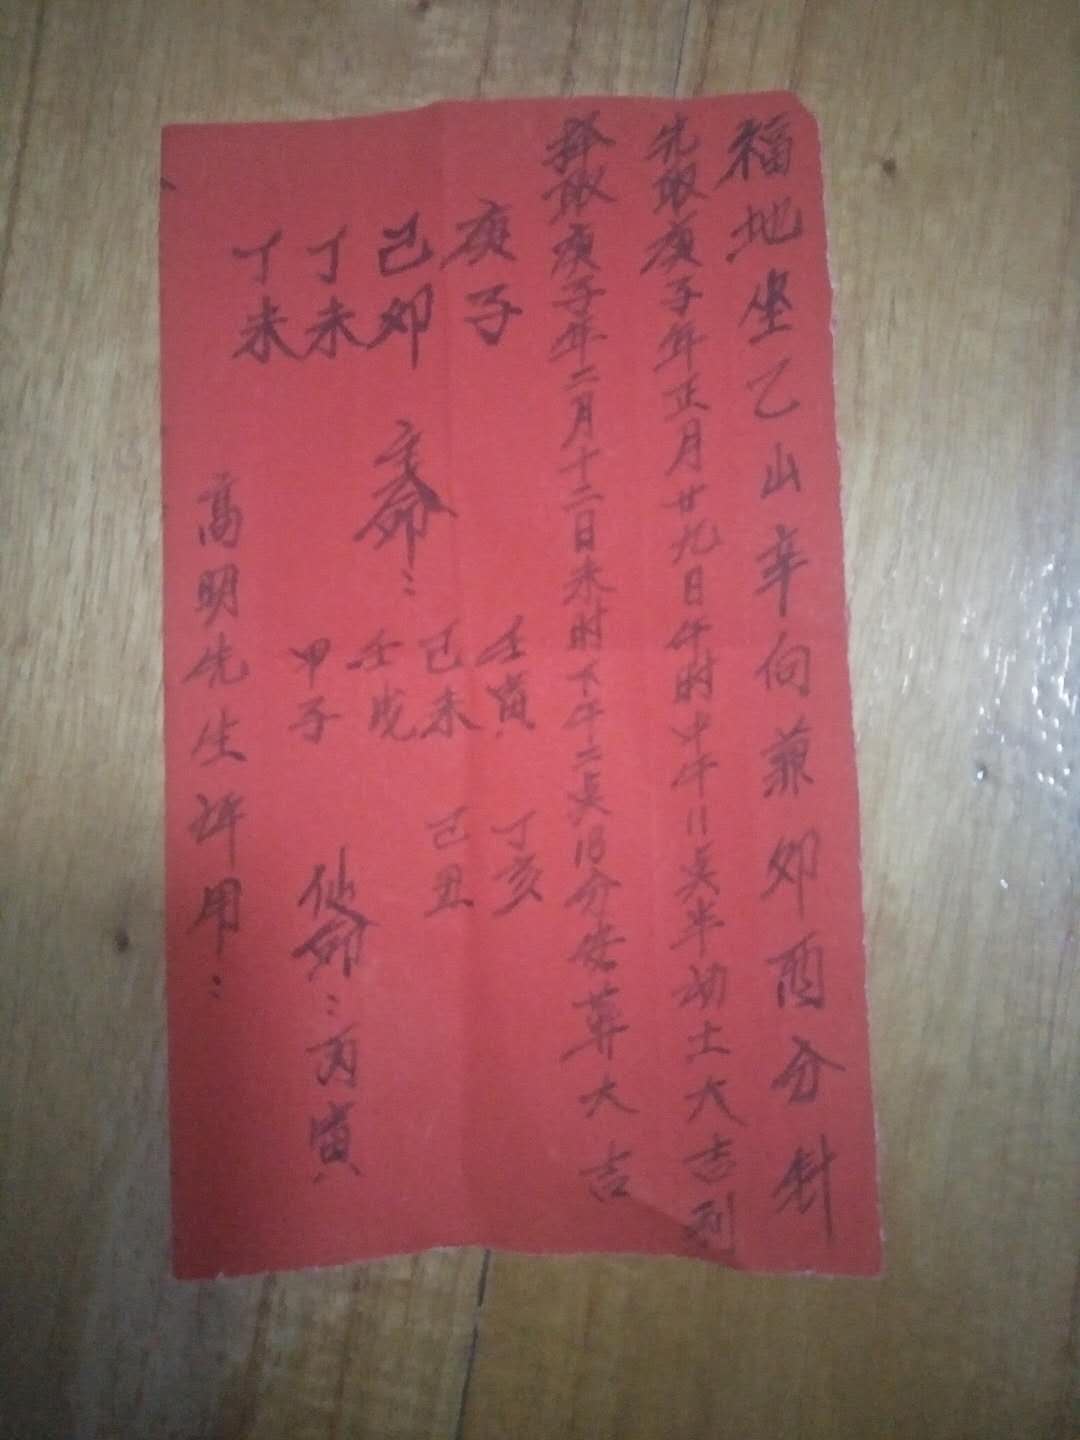 福地坐乙山辛向兼卯酉分针
先取庚子年正月廿九日午时中午11点半动土大吉利
择取庚子年二月十二日未时下午二点18分安葬大吉
庚子
己卯
丁未
丁未
主命：
壬寅
己未
壬戌
甲子
丁亥
己丑
仙命：丙寅
高明先生评用：